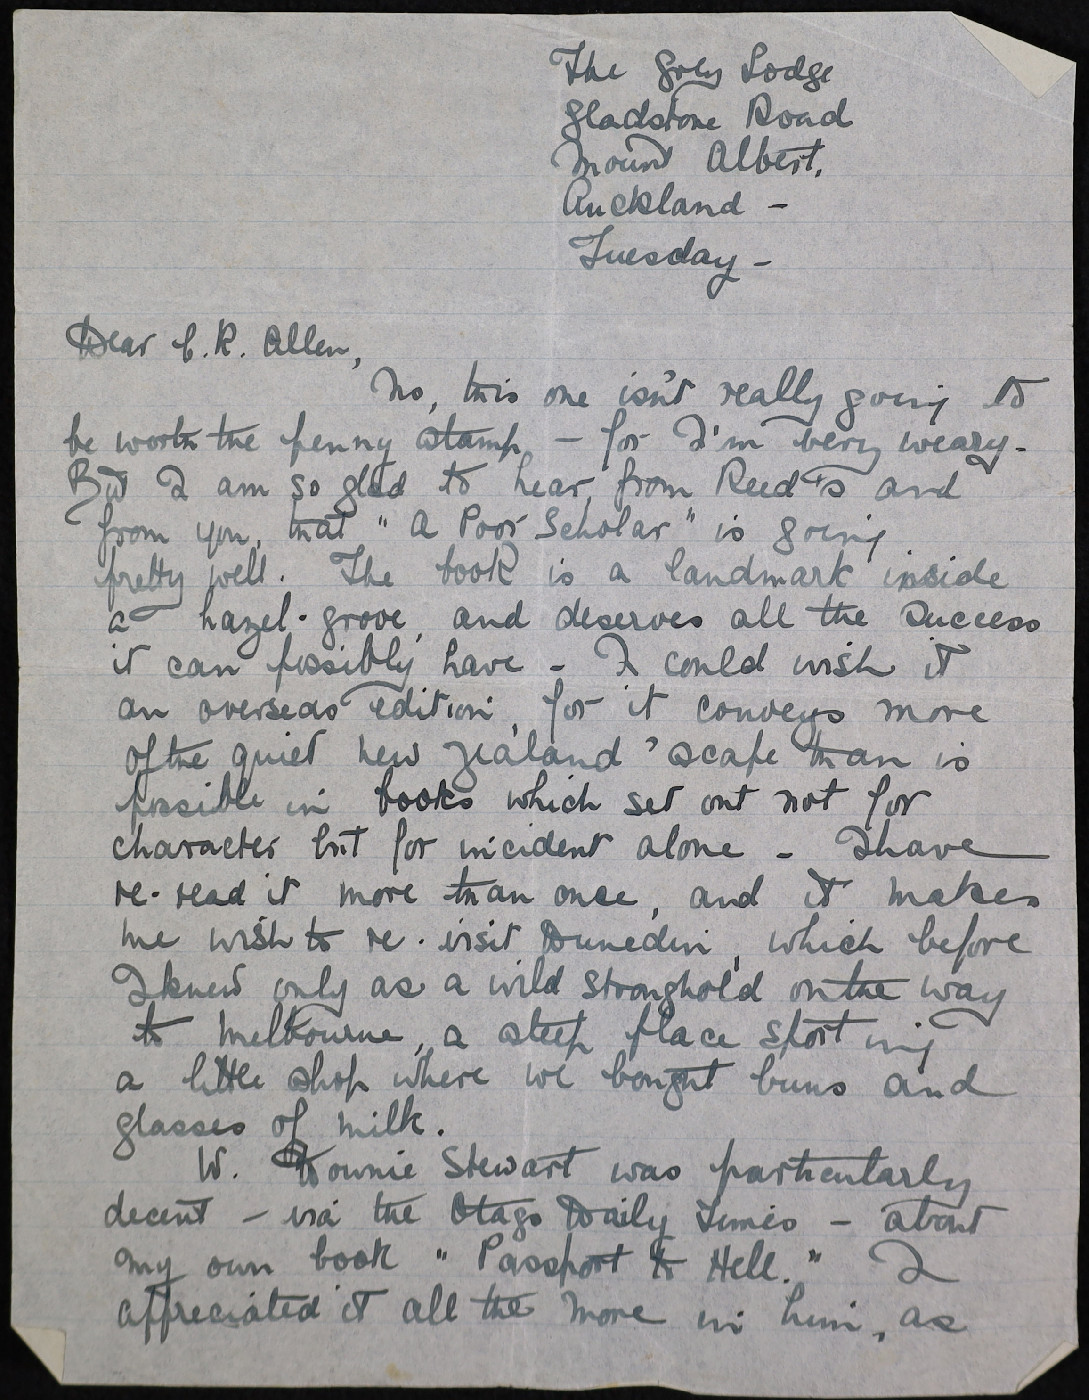 The Grey Lodge
Gladstone Road
Mount Albert,
Auckland -
Tuesday -
Dear C. R. Allen,
No, this one isn't really going to
be worth the penny stamp - for I'm very weary.
But I am so glad to hear, from Reed's and
from you, that "A Poor Scholar" is going
pretty well. The book is a landmark inside
a hazel-grove, and deserves all the success
it can possibly have - I could wish it
an overseas edition, for it conveys more
of the quiet New Zealand 'scape than is
possible in books which set out not for
character but for incident alone - I have
re-read it more than once, and it makes
me wish to re-visit Dunedin, which before
I knew only as a wild stronghold on the way
to Melbourne, a steep place sporting
a little shop where we bought buns and
glasses of milk.
W. Downie Stewart was particularly
decent - via the Otago Daily Times - about
my own book "Passport to Hell." I
appreciated it all the more in him, as